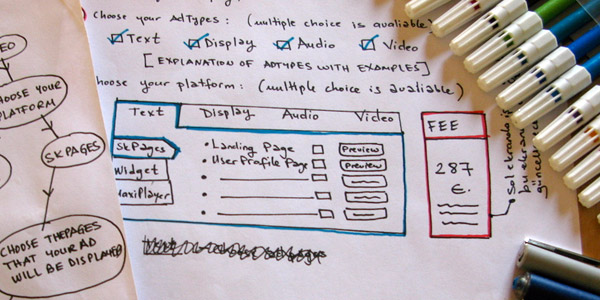 Choose your AdTypes: (multiple choice is avaliable)
Text Display Audio Video
[EXPLANATION OF ADTYPES WITH EXAMPLES]
choose your platform: (multiple choice is avaliable)
Text Display Audio Video
SkPages
Widget
MaxiPlayer
• Landing Page Preview
• User Profile Page Preview
FEE
287
€.
• Sol ekranda
bu ekran
güncel
EO
CHOOSE YOUR
PLATFORM
SKPAGES
CHOOSE THE PAGES
THAT YOUR AD
WILL BE DISPLAYED